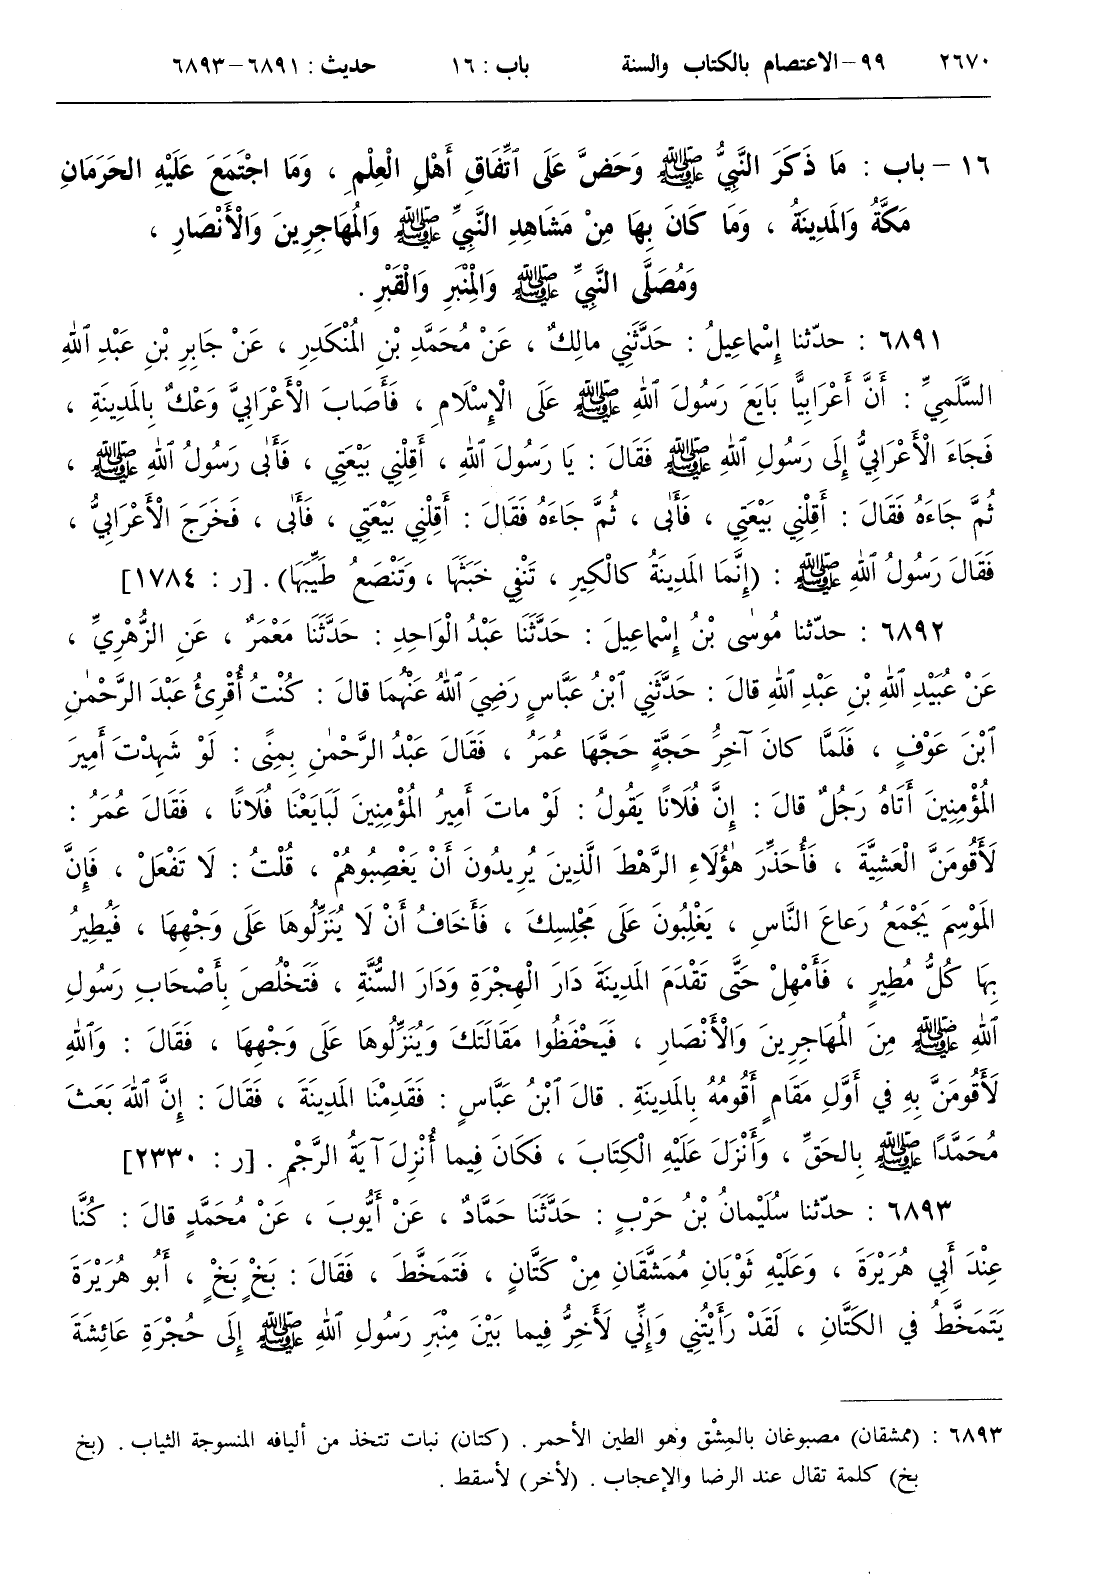 ٢٦٧٠ ٩٩-الاعتصام بالكتاب والسنة باب : ١٦ حديث : ٦٨٩١-٦٨٩٣
١٦ - باب : مَا ذَكَرَ النَّبِيُّ ﷺ وَحَضَّ عَلَى ٱتِّفَاقِ أَهْلِ الْعِلْمِ ، وَمَا اجْتَمَعَ عَلَيْهِ الحَرَمَانِ
مَكَّةُ وَالمَدِينَةُ ، وَمَا كَانَ بِهَا مِنْ مَشَاهِدِ النَّبِيِّ ﷺ وَالمُهَاجِرِينَ وَالْأَنْصَارِ ،
وَمُصَلَّى النَّبِيِّ ﷺ وَالمِنْبَرِ وَالْقَبْرِ .
٦٨٩١ : حدّثنا إِسْماعِيلُ : حَدَّثَنِي مالِكٌ ، عَنْ مُحَمَّدِ بْنِ المُنْكَدِرِ ، عَنْ جَابِرِ بْنِ عَبْدِ ٱللهِ
السَّلَمِيِّ : أَنَّ أَعْرَابِيًّا بَايَعَ رَسُولَ ٱللهِ ﷺ عَلَى الْإِسْلَامِ ، فَأَصَابَ الْأَعْرَابِيَّ وَعْكٌ بِالمَدِينَةِ ،
فَجَاءَ الْأَعْرَابِيُّ إِلَى رَسُولِ ٱللهِ ﷺ فَقَالَ : يَا رَسُولَ ٱللهِ ، أَقِلْنِي بَيْعَتِي ، فَأَبَى رَسُولُ ٱللهِ ﷺ ،
ثُمَّ جَاءَهُ فَقَالَ : أَقِلْنِي بَيْعَتِي ، فَأَبَى ، ثُمَّ جَاءَهُ فَقَالَ : أَقِلْنِي بَيْعَتِي ، فَأَبَى ، فَخَرَجَ الْأَعْرَابِيُّ ،
فَقَالَ رَسُولُ ٱللهِ ﷺ : (إِنَّمَا المَدِينَةُ كالْكِيرِ ، تَنْفِي خَبَثَهَا ، وَتَنْصَعُ طَيِّبَهَا) . [ر : ١٧٨٤]
٦٨٩٢ : حدّثنا مُوسٰى بْنُ إِسْماعِيلَ : حَدَّثَنَا عَبْدُ الْوَاحِدِ : حَدَّثَنَا مَعْمَرٌ ، عَنِ الزُّهْرِيِّ ،
عَنْ عُبَيْدِ ٱللهِ بْنِ عَبْدِ ٱللهِ قالَ : حَدَّثَنِي ٱبْنُ عَبَّاسٍ رَضِيَ ٱللهُ عَنْهُمَا قالَ : كُنْتُ أُقْرِئُ عَبْدَ الرَّحْمٰنِ
ٱبْنَ عَوْفٍ ، فَلَمَّا كانَ آخِرُ حَجَّةٍ حَجَّهَا عُمَرُ ، فَقَالَ عَبْدُ الرَّحْمٰنِ بِمِنًى : لَوْ شَهِدْتَ أَمِيرَ
المُؤْمِنِينَ أَتَاهُ رَجُلٌ قالَ : إِنَّ فُلَانًا يَقُولُ : لَوْ ماتَ أَمِيرُ المُؤْمِنِينَ لَبَايَعْنَا فُلَانًا ، فَقَالَ عُمَرُ :
لَأَقُومَنَّ الْعَشِيَّةَ ، فَأُحَذِّرَ هٰؤُلَاءِ الرَّهْطَ الَّذِينَ يُرِيدُونَ أَنْ يَغْصِبُوهُمْ ، قُلْتُ : لَا تَفْعَلْ ، فَإِنَّ
المَوْسِمَ يَجْمَعُ رَعاعَ النَّاسِ ، يَغْلِبُونَ عَلَى مَجْلِسِكَ ، فَأَخَافُ أَنْ لَا يُنَزِّلُوهَا عَلَى وَجْهِهَا ، فَيُطِيرُ
بِهَا كُلُّ مُطِيرٍ ، فَأَمْهِلْ حَتَّى تَقْدَمَ المَدِينَةَ دَارَ الْهِجْرَةِ وَدَارَ السُّنَّةِ ، فَتَخْلُصَ بِأَصْحَابِ رَسُولِ
ٱللهِ ﷺ مِنَ المُهَاجِرِينَ وَالْأَنْصَارِ ، فَيَحْفَظُوا مَقَالَتَكَ وَيُنَزِّلُوهَا عَلَى وَجْهِهَا ، فَقَالَ : وَٱللهِ
لَأَقُومَنَّ بِهِ فِي أَوَّلِ مَقَامٍ أَقُومُهُ بِالمَدِينَةِ . قالَ ٱبْنُ عَبَّاسٍ : فَقَدِمْنَا المَدِينَةَ ، فَقَالَ : إِنَّ ٱللهَ بَعَثَ
مُحَمَّدًا ﷺ بِالحَقِّ ، وَأَنْزَلَ عَلَيْهِ الْكِتَابَ ، فَكَانَ فِيما أُنْزِلَ آيَةُ الرَّجْمِ . [ر : ٢٣٣٠]
٦٨٩٣ : حدّثنا سُلَيْمانُ بْنُ حَرْبٍ : حَدَّثَنَا حَمَّادٌ ، عَنْ أَيُّوبَ ، عَنْ مُحَمَّدٍ قالَ : كُنَّا
عِنْدَ أَبِي هُرَيْرَةَ ، وَعَلَيْهِ ثَوْبَانِ مُمَشَّقَانِ مِنْ كَتَّانٍ ، فَتَمَخَّطَ ، فَقَالَ : بَخْ بَخْ ، أَبُو هُرَيْرَةَ
يَتَمَخَّطُ فِي الكَتَّانِ ، لَقَدْ رَأَيْتُنِي وَإِنِّي لَأَخِرُّ فِيما بَيْنَ مِنْبَرِ رَسُولِ ٱللهِ ﷺ إِلَى حُجْرَةِ عَائِشَةَ
٦٨٩٣ : (ممشقان) مصبوغان بالمِشْق وهو الطين الأحمر . (كتان) نبات تتخذ من أليافه المنسوجة الثياب . (بخ
بخ) كلمة تقال عند الرضا والإعجاب . (لأخر) لأسقط .